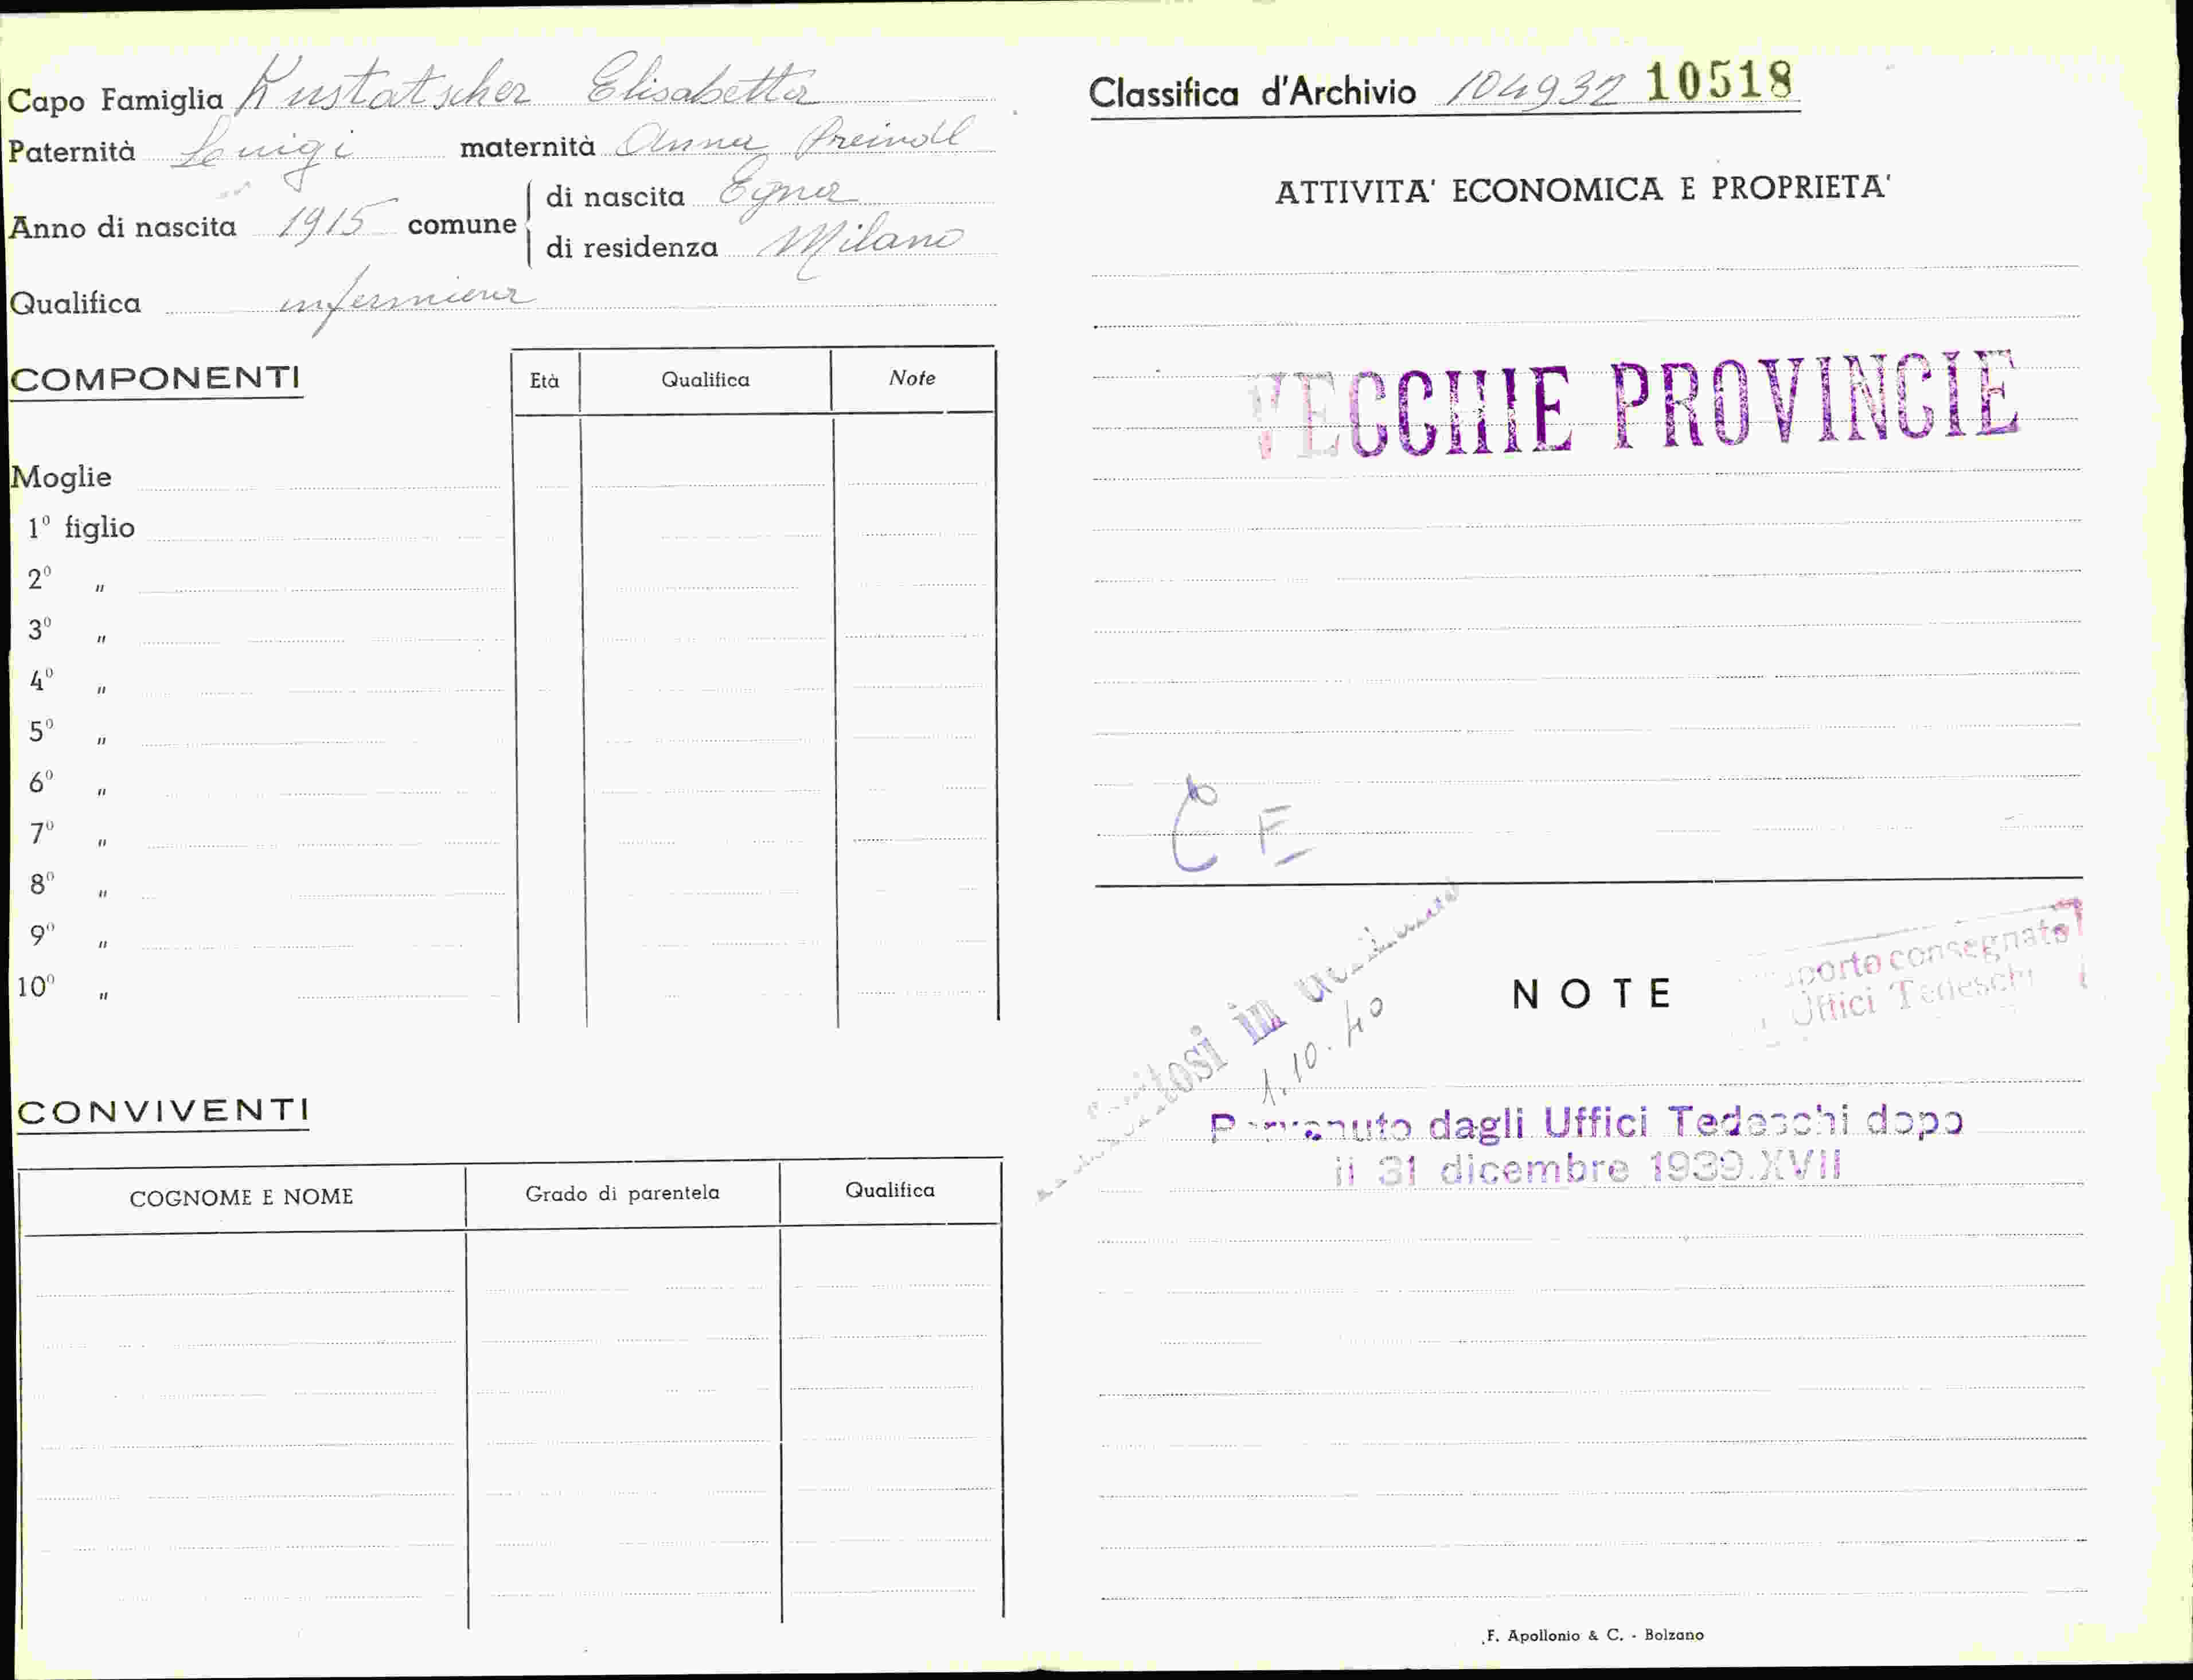 Capo Famiglia Kustatscher Elisabetta
Paternità Luigi maternità Anna Preindl
Anno di nascita 1915 comune di nascita Egna
di residenza Milano
Qualifica infermiera
COMPONENTI
Età Qualifica Note
Moglie
1º figlio
2º "
3º "
4º "
5º "
6º "
7º "
8º "
9º "
10º "
CONVIVENTI
COGNOME E NOME Grado di parentela Qualifica
Classifica d'Archivio 104932 10518
ATTIVITA' ECONOMICA E PROPRIETA'
VECCHIE PROVINCIE
C E
NOTE
in
1.10.40
consegnato
Uffici Tedeschi
Pervenuto dagli Uffici Tedeschi dopo
il 31 dicembre 1939.XVII
F. Apollonio & C. - Bolzano